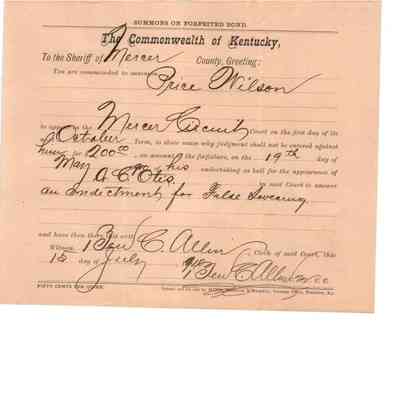 SUMMONS ON FORFEITED BOND.
The Commonwealth of Kentucky,
To the Sheriff of Mercer County, Greeting:
You are commanded to summon
Price Wilson
to appear in the Mercer Circuit Court on the first day of its
October Term, to show cause why judgment shall not be entered against
him for $200.00, on account of the forfeiture, on the 19th day of
May of his undertaking as bail for the appearance of
J. A. C. Otes. in said Court to answer
an Indictment for False Swearing
and have then there this writ.
Witness, Ben C. Allin, Clerk of said Court, this
15 day of July
Ben C. Allin M.C.C.
FIFTY CENTS PER QUIRE.